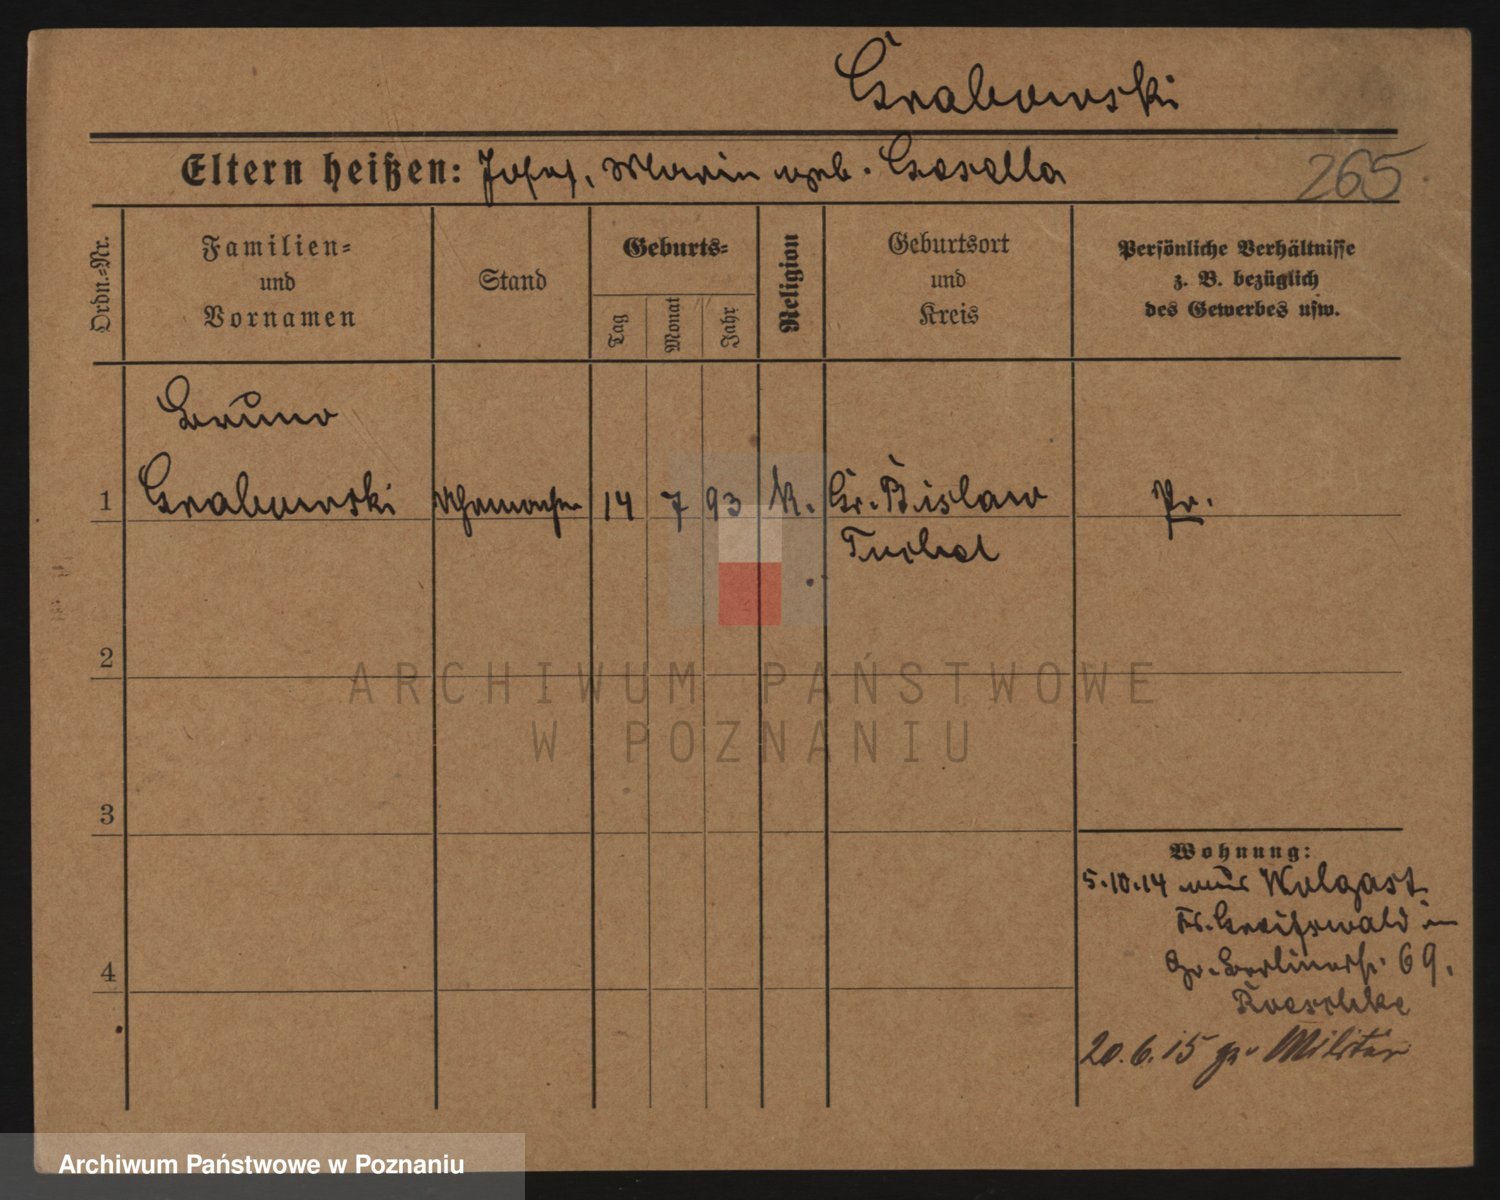 Grabowski
Eltern heißen: Josef, Marie geb. Gesella
265
Ordn.-Nr.
Familien-
und
Vornamen
Stand
Geburts-
Tag
Monat
Jahr
Religion
Geburtsort
und
Kreis
Persönliche Verhältnisse
z. B. bezüglich
des Gewerbes usw.
Bruno
1 Grabowski Uhrmacher 14 7 93 K. Gr. Bislaw Pr.
Tuchel
2
ARCHIWUM PAŃSTWOWE
W POZNANIU
3
Wohnung:
5.10.14 aus Wolgast
Kr. Greifswald in
Gr. Berlinerstr. 69.
Roeschke
4
20.6.15 zu Militär
Archiwum Państwowe w Poznaniu